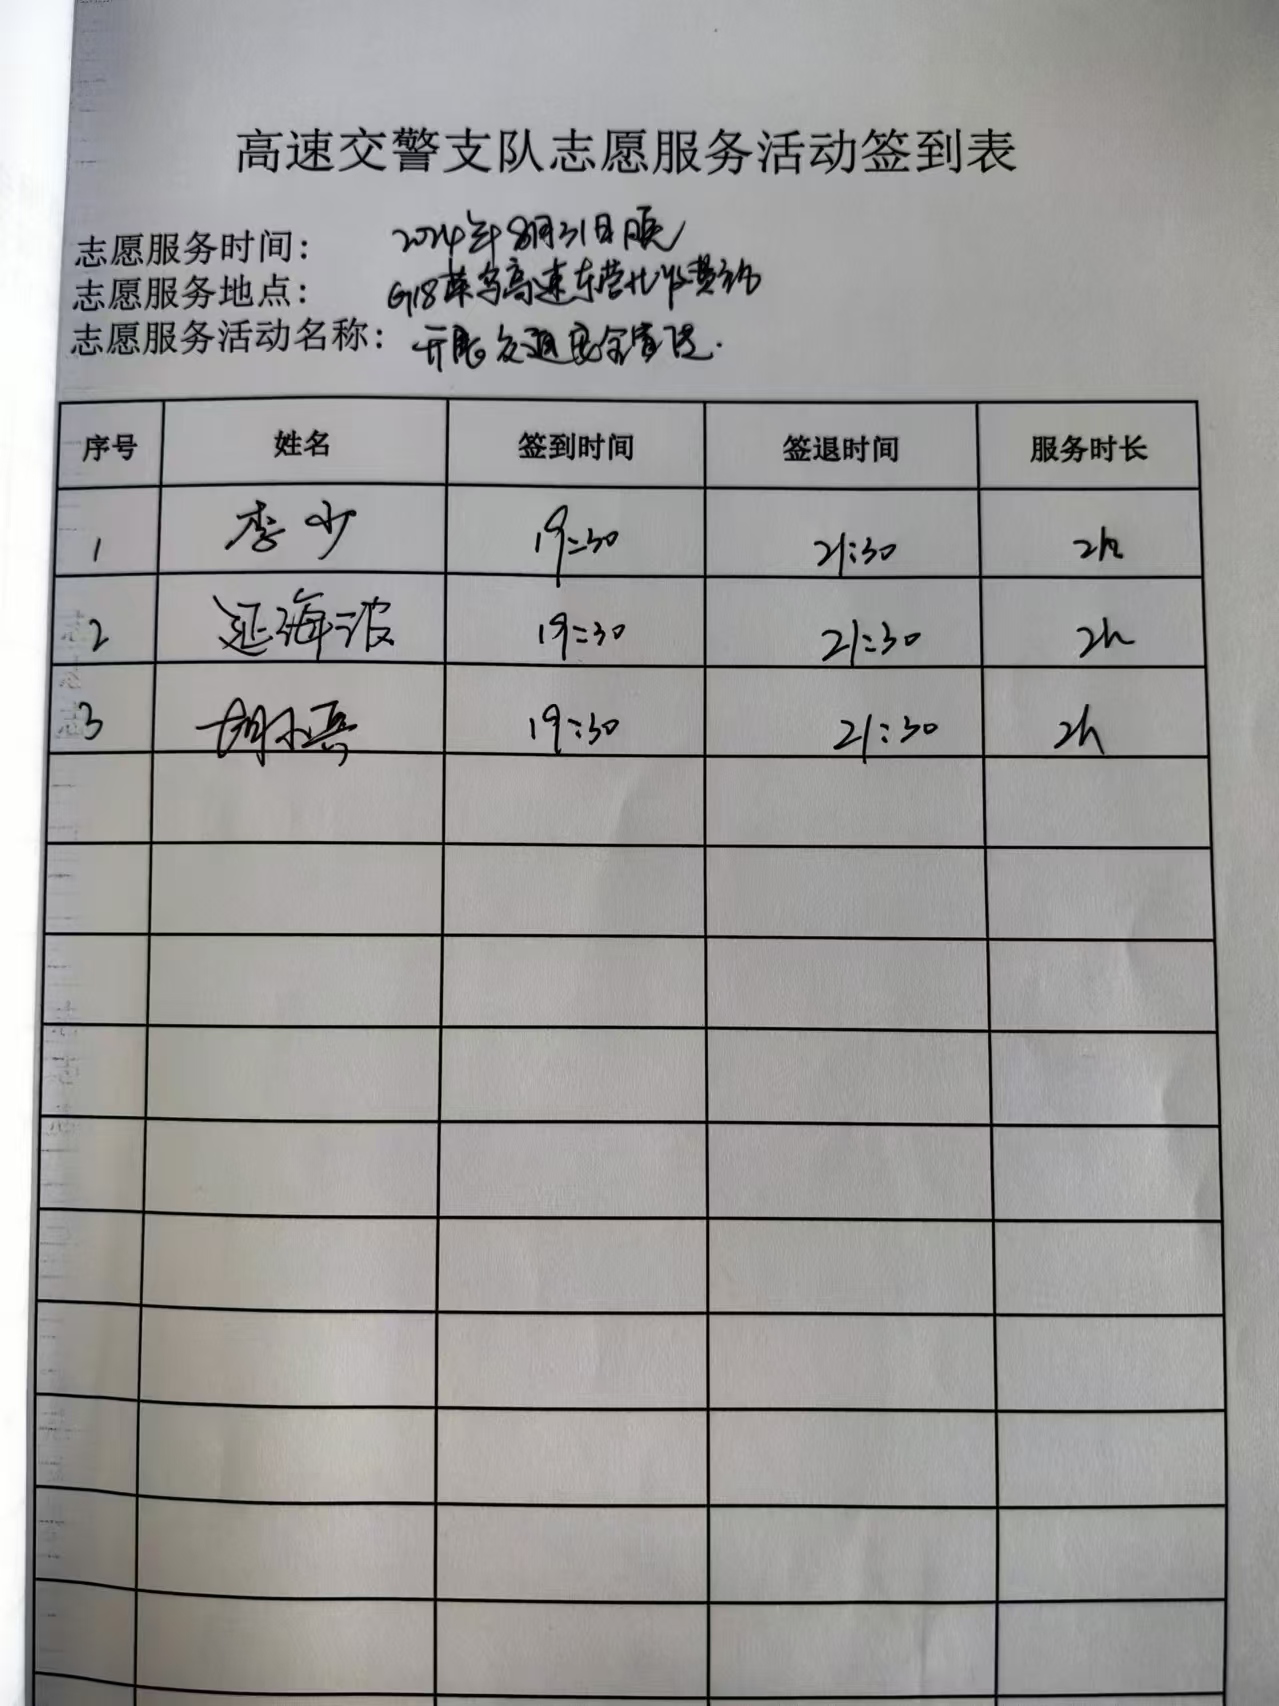 高速交警支队志愿服务活动签到表
志愿服务时间： 2024年8月31日晚
志愿服务地点： G18荣乌高速东营北收费站
志愿服务活动名称： 开展交通安全宣传.
序号 姓名 签到时间 签退时间 服务时长
1 李少 19:30 21:30 2h
2 延海波 19:30 21:30 2h
3 胡小 19:30 21:30 2h